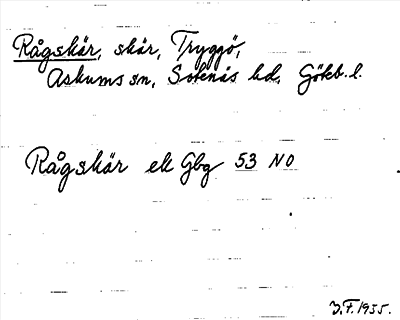 Rågskär, skär, Tryggö,
Askums sn, Sotenäs hd, Göteb. l.
Rågskär ek Gbg 53 NO
J.F. 1955.